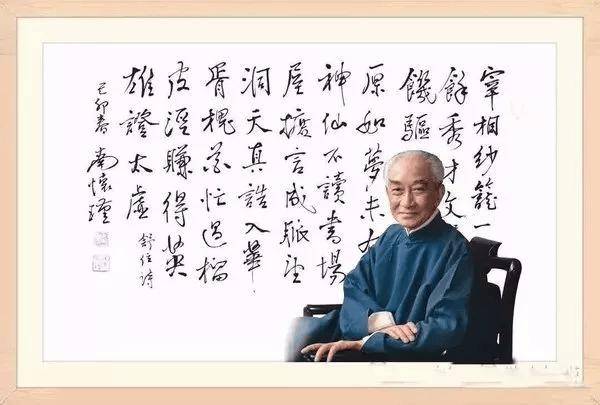 宰相紗籠一
餘秀才文
饑驅
原如夢未
神仙不讀書場
屋摭言成脈望
洞天真誥入華
胥槐花忙過榴
皮賺得英
雄證太虛
舒位詩
己卯春 南懷瑾